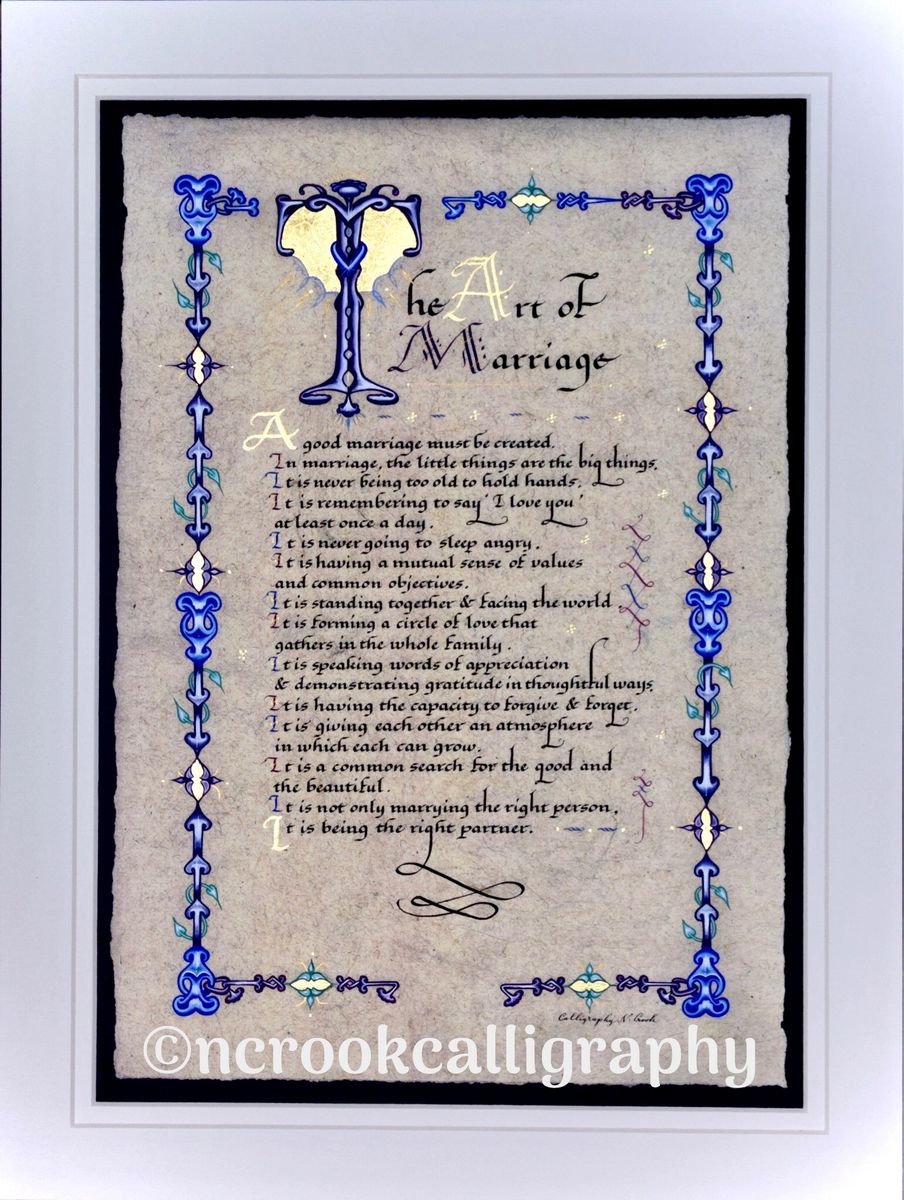 The Art of
Marriage
A good marriage must be created.
In marriage, the little things are the big things.
It is never being too old to hold hands.
It is remembering to say 'I love you'
at least once a day.
It is never going to sleep angry.
It is having a mutual sense of values
and common objectives.
It is standing together & facing the world.
It is forming a circle of love that
gathers in the whole family.
It is speaking words of appreciation
& demonstrating gratitude in thoughtful ways.
It is having the capacity to forgive & forget.
It is giving each other an atmosphere
in which each can grow.
It is a common search for the good and
the beautiful.
It is not only marrying the right person.
It is being the right partner.
Calligraphy N. Crook
©ncrookcalligraphy